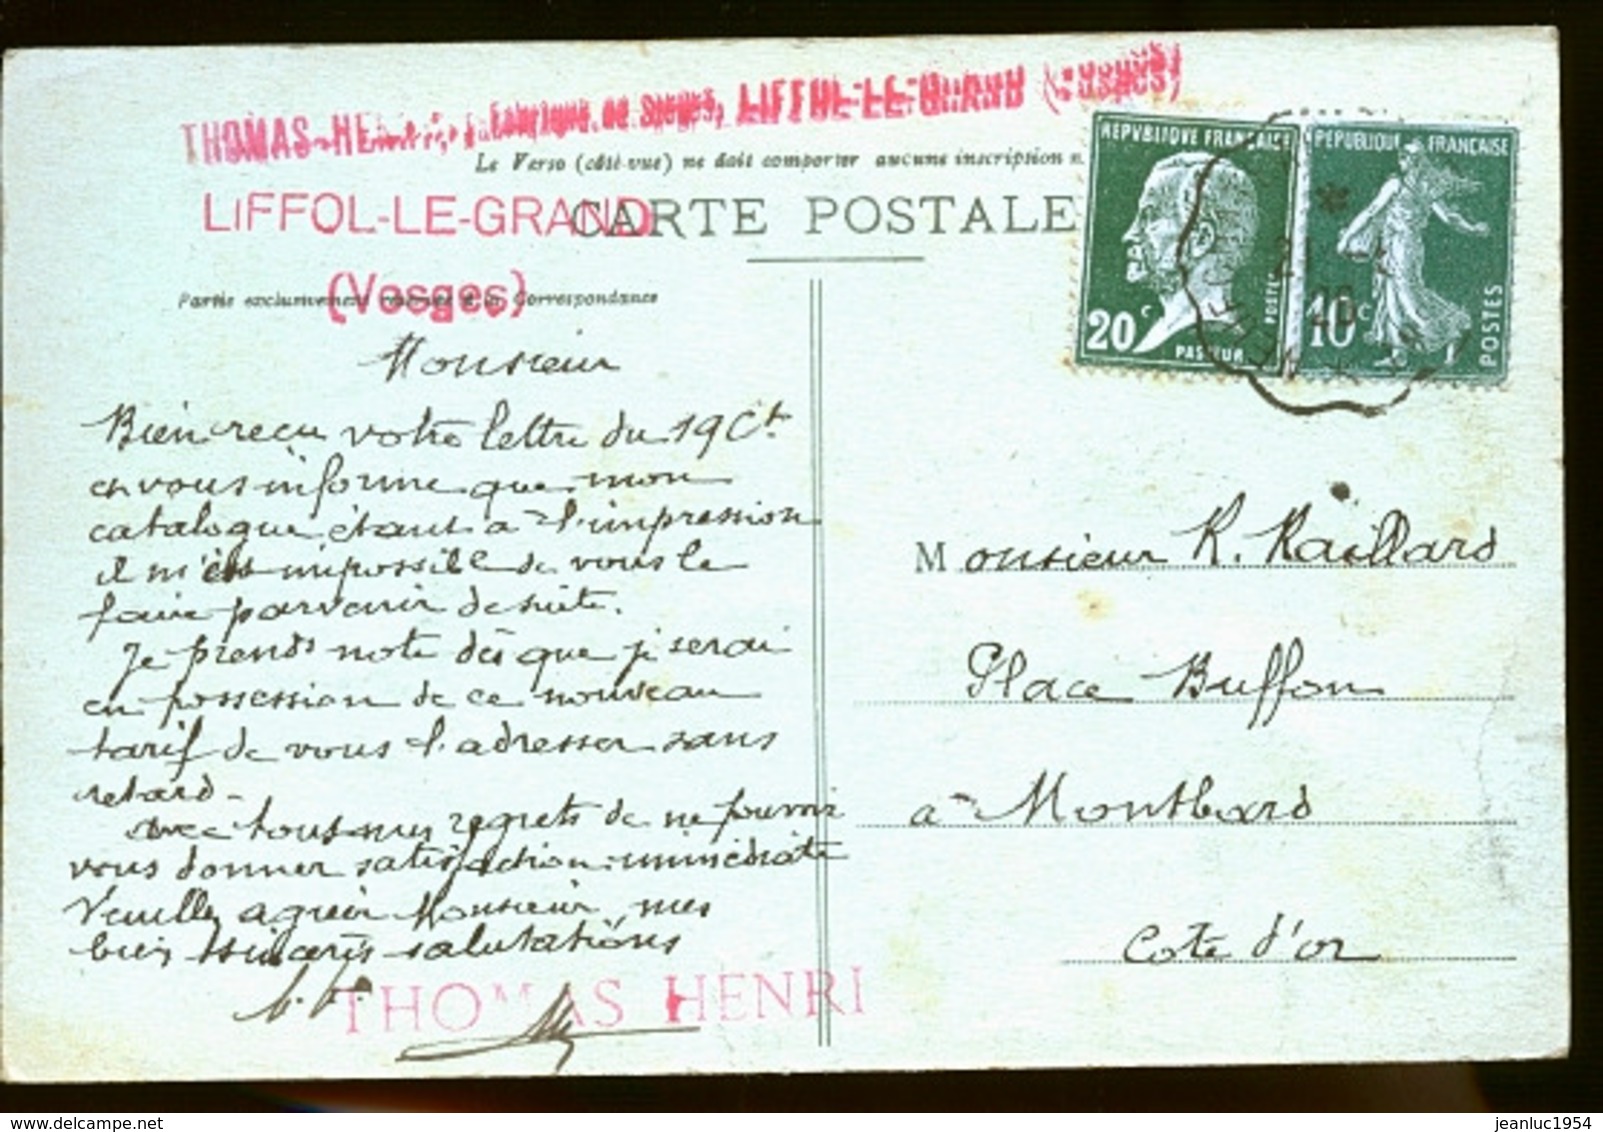 THOMAS-HENRI, Fabrique de Sièges, LIFFOL-LE-GRAND (VOSGES)
Le Verso (côté vue) ne doit comporter aucune inscription
LIFFOL-LE-GRAND
CARTE POSTALE
(Vosges)
Partie exclusivement réservée à la Correspondance
REPVBLIQVE FRANÇAISE
20 c
POSTES
PASTEUR
REPUBLIQUE FRANÇAISE
10 c
POSTES
Monsieur
Bien reçu votre lettre du 19 Ct
et vous informe que mon
catalogue étant à l'impression
il m'est impossible de vous le
faire parvenir de suite.
Je prends note dès que je serai
en possession de ce nouveau
tarif de vous l'adresser sans
retard -
Avec tous mes regrets de ne pouvoir
vous donner satisfaction immédiate
Veuillez agréer Monsieur, mes
bien sincères salutations
THOMAS HENRI
Monsieur R. Raillard
Place Buffon
à Montbard
Cote d'or
jeanluc1954